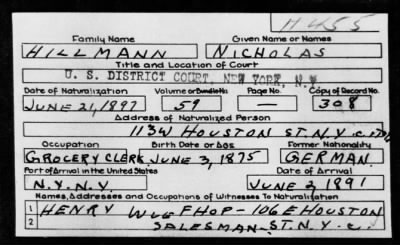 H455
Family Name Given Name or Names
HILLMANN NICHOLAS
Title and Location of Court
U. S. DISTRICT COURT, NEW YORK, N.Y.
Date of Naturalization Volume or Bundle No. Page No. Copy of Record No.
JUNE 21, 1897 59 — 308
Address of Naturalized Person
113W HOUSTON ST. N.Y.C.
Occupation Birth Date or Age Former Nationality
GROCERY CLERK JUNE 3, 1875 GERMAN
Port of Arrival in the United States Date of Arrival
N.Y. N.Y. JUNE 2, 1891
Names, Addresses and Occupations of Witnesses To Naturalization
1 HENRY 106 E HOUSTON
2 SALESMAN ST. N.Y. C.